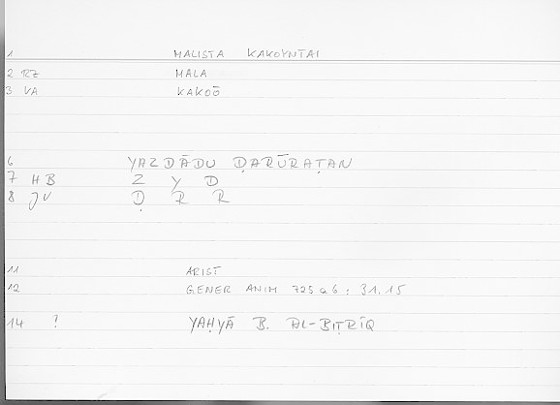 1 MALISTA KAKOYNTAI
2 RZ MALA
3 VA KAKOŌ
6 YAZDĀDU ḌARŪRATAN
7 HB Z Y D
8 JV Ḍ R R
11 ARIST
12 GENER ANIM 725 a 6 : 31,15
14 ? YAḤYĀ B. AL-BIṬRĪQ